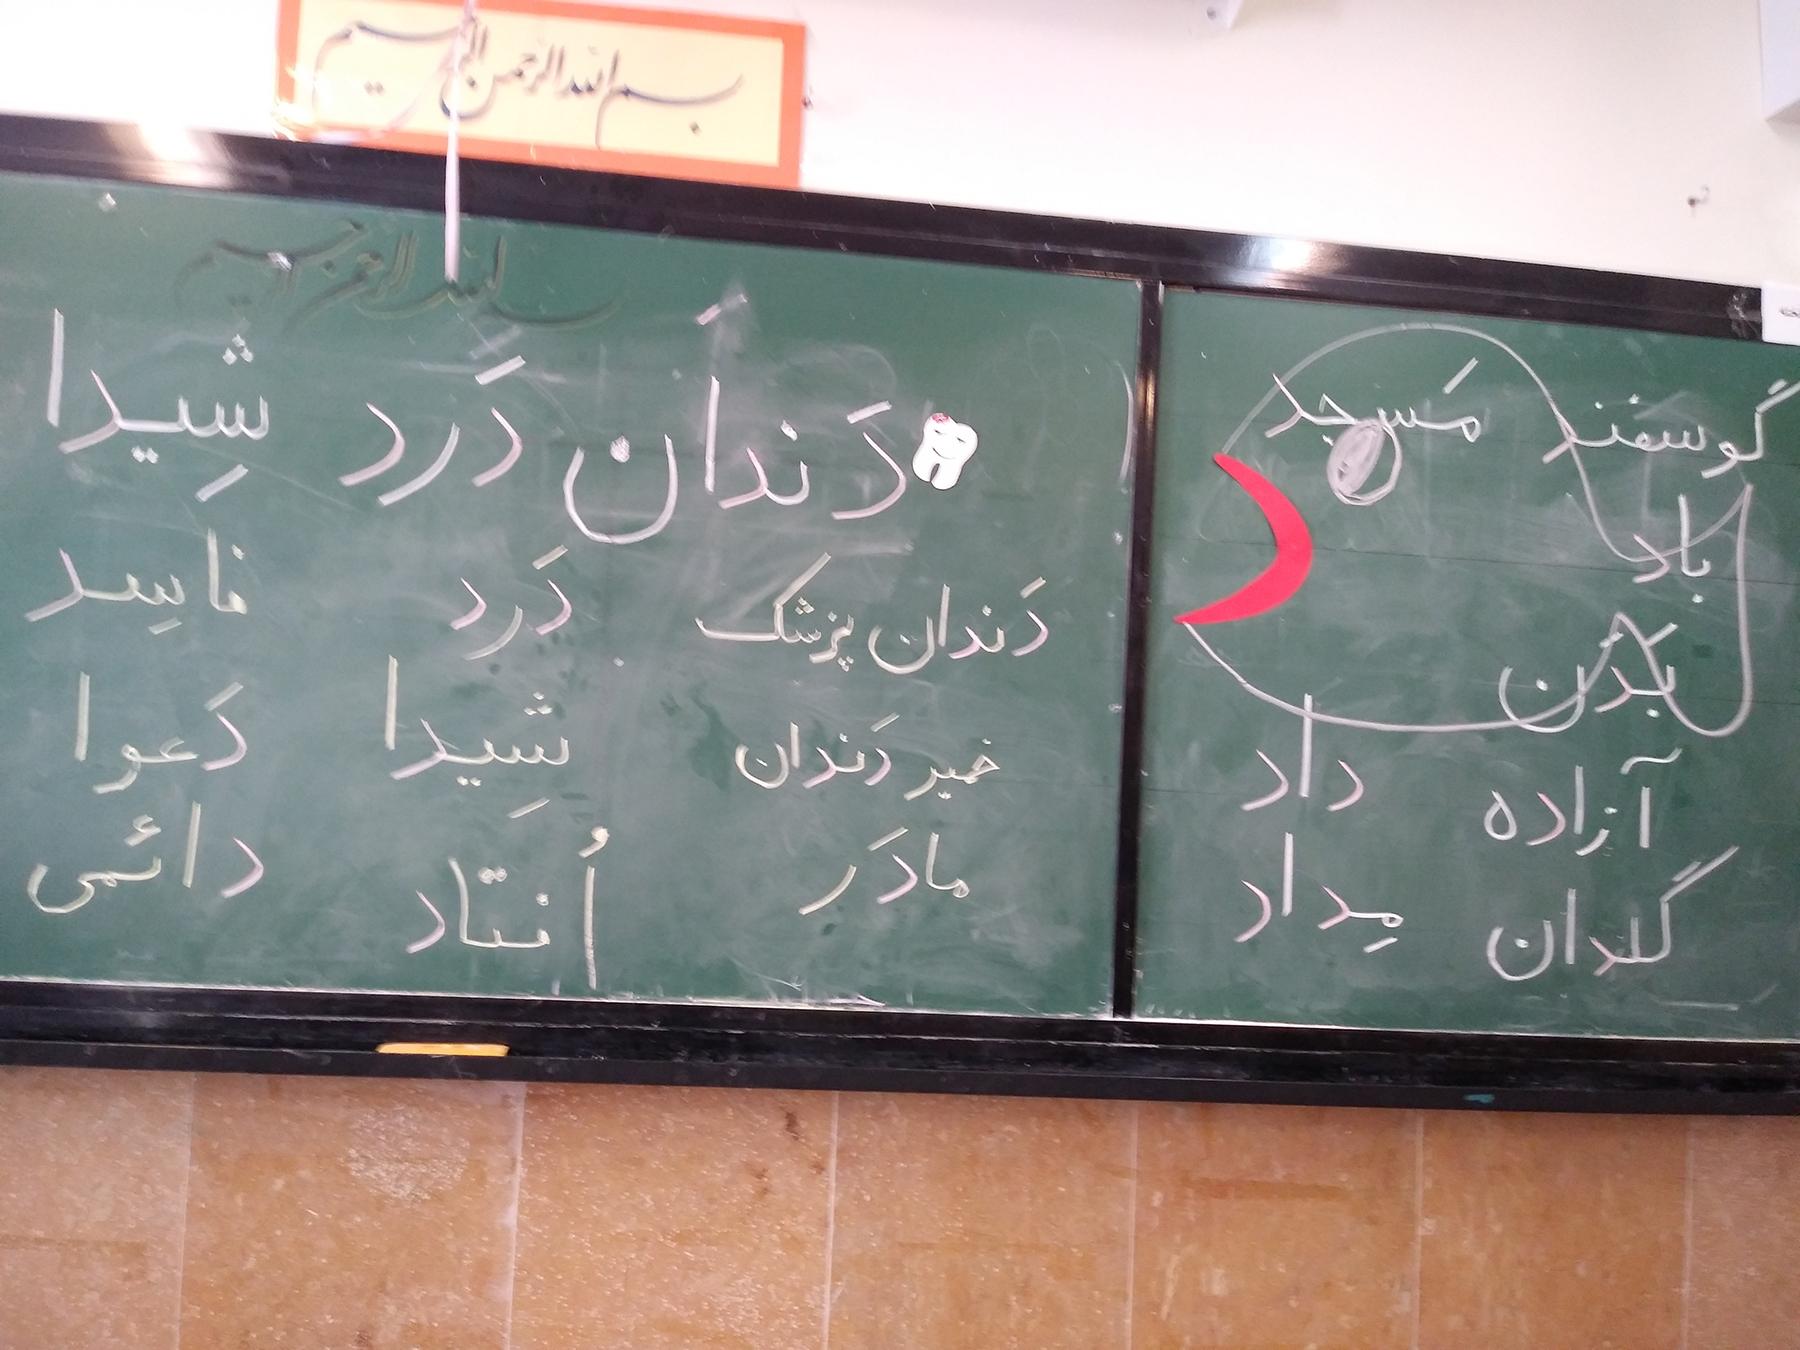 بسم الله الرحمن الرحیم
بسم الله الرحمن الرحیم
گوسفند مَسجد
باد
بدن
آزاده داد
گلدان مِداد
دَندان دَرد شِیدا
دَندان پزشک دَرد فاسِد
خمیر دَندان شِیدا دَعوا
مادَر اُفتاد دائمی